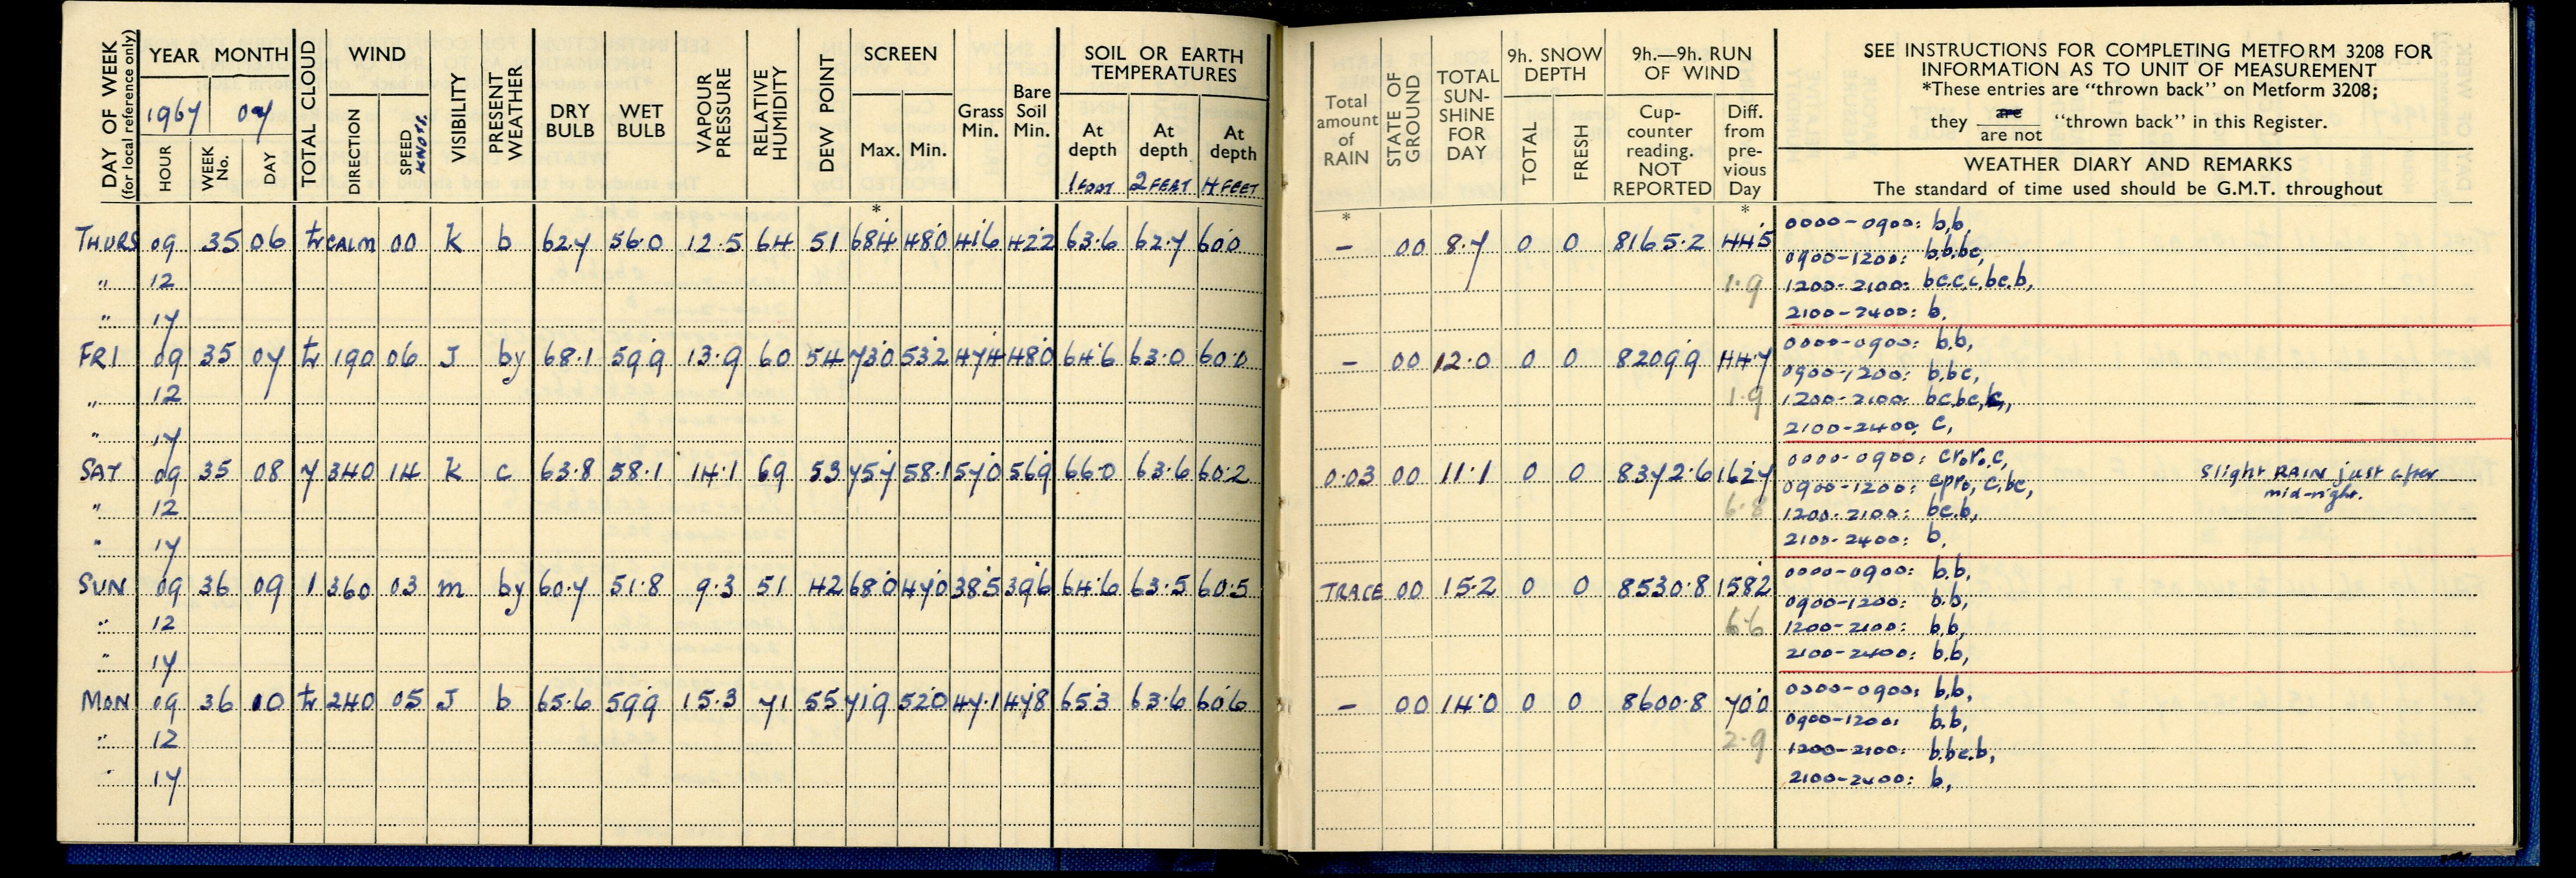 DAY OF WEEK (for local reference only)
YEAR MONTH
1967 07
HOUR
WEEK No.
DAY
TOTAL CLOUD
WIND
DIRECTION
SPEED KNOTS
VISIBILITY
PRESENT WEATHER
DRY BULB
WET BULB
VAPOUR PRESSURE
RELATIVE HUMIDITY
DEW POINT
SCREEN
Max. Min.
*
Grass Min.
Bare Soil Min.
SOIL OR EARTH TEMPERATURES
At depth 1 FOOT
At depth 2 FEAT
At depth 4 FEET
Total amount of RAIN
*
STATE OF GROUND
TOTAL SUN-SHINE FOR DAY
9h. SNOW DEPTH
TOTAL
FRESH
9h.—9h. RUN OF WIND
Cup-counter reading. NOT REPORTED
Diff. from pre-vious Day
*
SEE INSTRUCTIONS FOR COMPLETING METFORM 3208 FOR
INFORMATION AS TO UNIT OF MEASUREMENT
*These entries are "thrown back" on Metform 3208;
they are / are not "thrown back" in this Register.
WEATHER DIARY AND REMARKS
The standard of time used should be G.M.T. throughout
THURS 09 35 06 tr CALM 00 K b 62.7 56.0 12.5 64 51 68.4 48.0 41.6 42.2 63.6 62.7 60.0 – 00 8.7 0 0 8165.2 44.5
0000-0900: b,b,
0900-1200: b,b,bc,
" 12 1.9
1200-2100: bc,c,c,bc,b,
" 17
2100-2400: b,
FRI 09 35 07 tr 190 06 J by 68.1 59.9 13.9 60 54 73.0 53.2 47.4 48.0 64.6 63.0 60.0 – 00 12.0 0 0 8209.9 44.7
0000-0900: b,b,
0900-1200: b,bc,
" 12 1.9
1200-2100: bc,bc,c,
" 17
2100-2400: c,
SAT 09 35 08 7 340 14 K c 63.8 58.1 14.1 69 53 75.7 58.1 57.0 56.9 66.0 63.6 60.2 0.03 00 11.1 0 0 8372.6 162.7
0000-0900: cr₀r₀c,
Slight RAIN just after mid-night.
0900-1200: cpr₀, c,bc,
" 12 6.8
1200-2100: bc,b,
" 17
2100-2400: b,
SUN 09 36 09 1 360 03 m by 60.7 51.8 9.3 51 42 68.0 47.0 38.5 39.6 64.6 63.5 60.5 TRACE 00 15.2 0 0 8530.8 158.2
0000-0900: b,b,
0900-1200: b,b,
" 12 6.6
1200-2100: b,b,
" 17
2100-2400: b,b,
MON 09 36 10 tr 240 05 J b 65.6 59.9 15.3 71 55 71.9 52.0 47.1 47.8 65.3 63.6 60.6 – 00 14.0 0 0 8600.8 70.0
0000-0900: b,b,
0900-1200: b,b,
" 12 2.9
1200-2100: b,bc,b,
" 17
2100-2400: b,